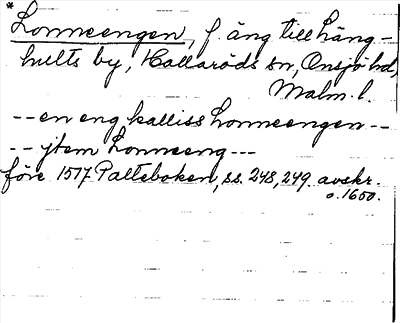 * Lonneengen, f. äng till Häng-
hults by, Hallaröds sn, Onsjö hd,
Malm. l.
-- en eng kalliss Lonneengen --
-- jtem Lonneeng ---
före 1517 Palteboken, ss. 248, 249 avskr.
o. 1650.